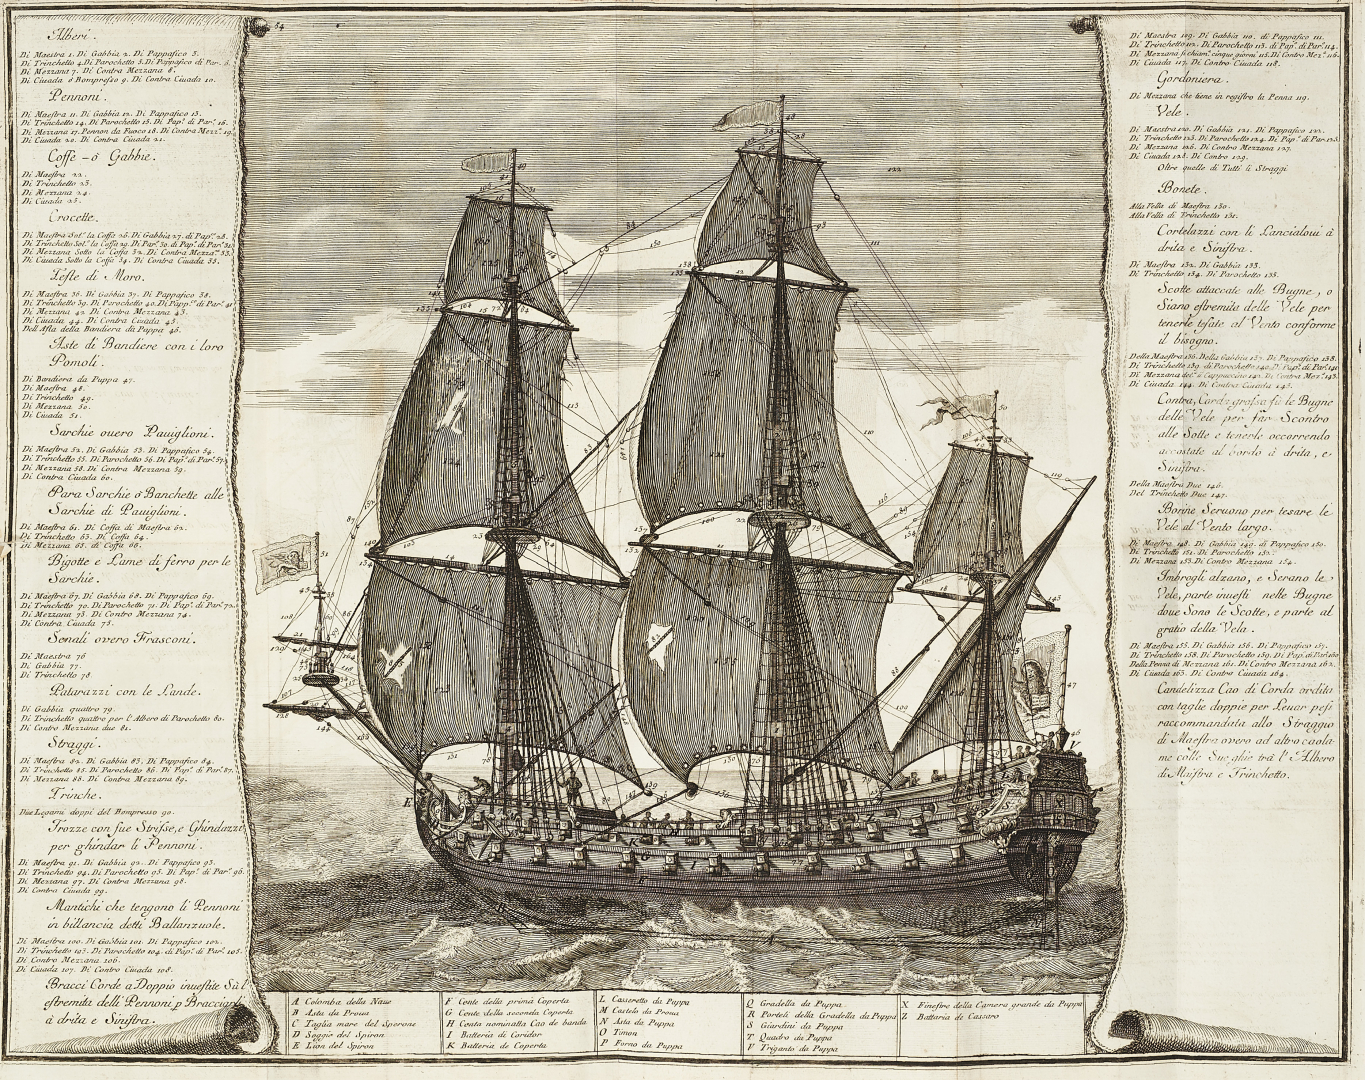 54
Alberi.
Di Maestra 1. Di Gabbia 2. Di Pappafico 3.
Di Trinchetto 4. Di Parochetto 5. Di Pappafico di Par. 6.
Di Mezzana 7. Di Contra Mezzana 8.
Di Ciuada ó Bompresso 9. Di Contra Ciuada 10.
Pennoni.
Di Maestra 11. Di Gabbia 12. Di Pappafico 13.
Di Trinchetto 14. Di Parochetto 15. Di Pap.º di Par.º 16.
Di Mezzana 17. Pennon da Fuoco 18. Di Contra Mezz.ª 19.
Di Ciuada 20. Di Contra Ciuada 21.
Coffe - ó Gabbie.
Di Maestra 22.
Di Trinchetto 23.
Di Mezzana 24.
Di Ciuada 25.
Crocette.
Di Maestra Sot.º la Coffa 26. Di Gabbia 27. di Pap.º 28.
Di Trinchetto Sot.º la Coffa 29. Di Par.º 30. di Pap.º di Par.º 31.
Di Mezzana Sotto la Coffa 32. Di Contra Mezz.ª 33.
Di Ciuada Sotto la Coffa 34. Di Contra Ciuada 35.
Teste di Moro.
Di Maestra 36. Di Gabbia 37. Di Pappafico 38.
Di Trinchetto 39. Di Parochetto 40. Di Papp.º di Par.º 41
Di Mezzana 42. Di Contra Mezzana 43.
Di Ciuada 44. Di Contra Ciuada 45.
Dell'Asta della Bandiera da Puppa 46.
Aste di Bandiere con i loro
Pomoli.
Di Bandiera da Puppa 47.
Di Maestra 48.
Di Trinchetto 49.
Di Mezzana 50.
Di Ciuada 51.
Sarchie ouero Pauiglioni.
Di Maestra 52. Di Gabbia 53. Di Pappafico 54.
Di Trinchetto 55. Di Parochetto 56. Di Pap.º di Par.º 57.
Di Mezzana 58. Di Contra Mezzana 59.
Di Contra Ciuada 60.
Para Sarchie ó Banchette alle
Sarchie di Pauiglioni.
Di Maestra 61. Di Coffa di Maestra 62.
Di Trinchetto 63. Di Coffa 64.
Di Mezzana 65. di Coffa 66.
Bigotte e Lame di ferro per le
Sarchie.
Di Maestra 67. Di Gabbia 68. Di Pappafico 69.
Di Trinchetto 70. Di Parochetto 71. Di Pap.º di Par.º 72.
Di Mezzana 73. Di Contra Mezzana 74.
Di Contra Ciuada 75.
Senali overo Frasconi.
Di Maestra 76
Di Gabbia 77.
Di Trinchetto 78.
Patarazzi con le Lande.
Di Gabbia quattro 79.
Di Trinchetto quattro per l'Albero di Parochetto 80.
Di Contro Mezzana due 81.
Straggi.
Di Maestra 82. Di Gabbia 83. Di Pappafico 84.
Di Trinchetto 85. Di Parochetto 86. Di Pap.º di Par.º 87.
Di Mezzana 88. Di Contra Mezzana 89.
Trinche.
Due Legami doppi del Bompresso 90.
Trozze con sue Strisse, e Ghindazzi
per ghindar li Pennoni.
Di Maestra 91. Di Gabbia 92. Di Pappafico 93.
Di Trinchetto 94. Di Parochetto 95. Di Pap.º di Par.º 96.
Di Mezzana 97. Di Contra Mezzana 98.
Di Contra Ciuada 99.
Mantichi che tengono li Pennoni
in billancia detti Ballanzuole.
Di Maestra 100. Di Gabbia 101. Di Pappafico 102.
Di Trinchetto 103. Di Parochetto 104. di Pap.º di Par.º 105.
Di Contro Mezzana 106.
Di Ciuada 107. Di Contro Ciuada 108.
Bracci Corde a Doppio inuestite Sù l'
estremita delli Pennoni p Bracciarle
à drita e Sinistra.
Di Maestra 109. Di Gabbia 110. di Pappafico 111.
Di Trinchetto 112. Di Parochetto 113. di Pap.º di Par.º 114.
Di Mezzana si chiam.º cinque giorni 115. Di Contro Mez.ª 116.
Di Ciuada 117. Di Contro Ciuada 118.
Gordoniera.
Di Mezzana che tiene in registro la Penna 119.
Vele.
Di Maestra 120. Di Gabbia 121. Di Pappafico 122.
Di Trinchetto 123. Di Parochetto 124. Di Pap.º di Par. 125.
Di Mezzana 126. Di Contro Mezzana 127.
Di Ciuada 128. Di Contro 129.
Oltre quelle di Tutti li Straggi
Bonete.
Alla Vella di Maestra 130.
Alla Vella di Trinchetto 131.
Cortelazzi con li Lancialoui à
drita e Sinistra.
Di Maestra 132. Di Gabbia 133.
Di Trinchetto 134. Di Parochetto 135.
Scotte attaccate alle Bugne, o
Siano estremita delle Vele per
tenerle tesate al Vento conforme
il bisogno.
Della Maestra 136. Della Gabbia 137. Di Pappafico 138.
Di Trinchetto 139. di Parochetto 140. Di Pap.º di Par. 141
Di Mezzana det.º il Cappuccino 142. Di Contra Mez.ª 143.
Di Ciuada 144. Di Contra Ciuada 145.
Contra, Corde grosse sù le Bugne
delle Vele per far Scontro
alle Sotte e tenerle occorrendo
accostate al bordo à drita, e
Sinistra.
Della Maestra Due 146.
Del Trinchetto Due 147.
Borine Seruono per tesare le
Vele al Vento largo.
Di Maestra 148. Di Gabbia 149. di Pappafico 150.
Di Trinchetto 151. Di Parochetto 152.
Di Mezzana 153. Di Contro Mezzana 154.
Imbrogli alzano, e Serano le
Vele, parte inuesti nelle Bugne
doue Sono le Scotte, e parte al
gratio della Vela.
Di Maestra 155. Di Gabbia 156. Di Pappafico 157.
Di Trinchetto 158. Di Parochetto 159. Di Pap. di Par. 160
Della Penna di Mezzana 161. Di Contro Mezzana 162.
Di Ciuada 163. Di Contra Ciuada 164.
Candelizza Cao di Corda ordita
con taglie doppie per Leuar pesi
raccommandata allo Straggio
di Maestra overo ad altro caola-
me colle Sue ghie trà l'Albero
di Mastra e Trinchetto.
A Colomba della Naue
B Asta da Proua
C Taglia mare del Sperone
D Soggio del Spiron
E Lion del Spiron
F Conte della prima Coperta
G Conte della seconda Coperta
H Conte nominatta Cao de banda
I Batteria di Coridor
K Batteria de Coperta
L Casseretto da Puppa
M Castelo da Proua
N Asta da Puppa
O Timon
P Forno da Puppa
Q Gradella da Puppa
R Porteli della Gradella da Puppa
S Giardini da Puppa
T Quadro da Puppa
V Triganto da Puppa
X Finestre della Camera grande da Puppa
Z Battaria de Cassaro